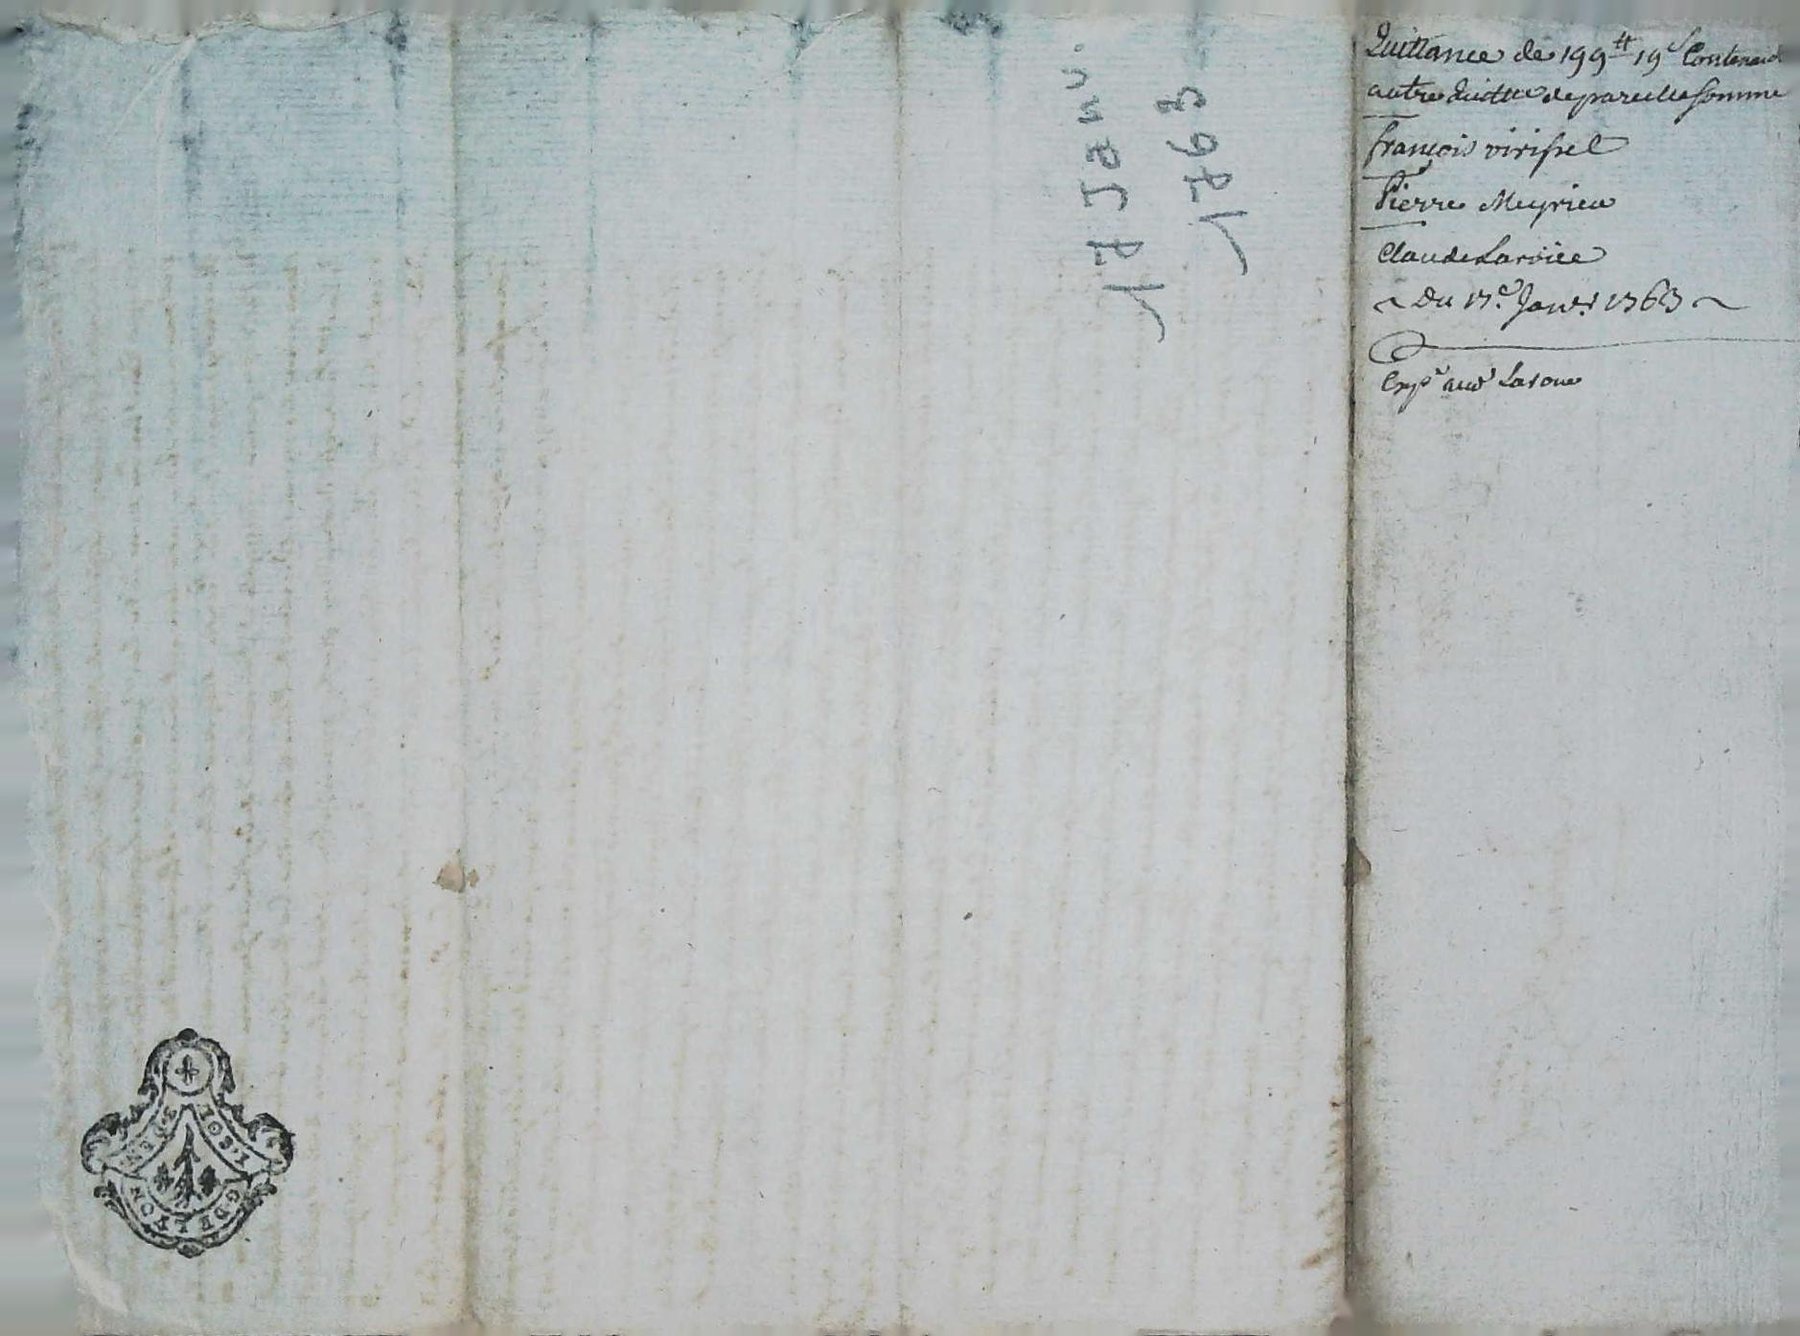 Quittance de 199 ₶ 19 s Contenant
autre quittce de pareille somme
françois virissel
Pierre Meyrieu
Claude Laroüe
~ du 17e. Janvr. 1763 ~
Expn aud Laroue
17 Janv.
1763
1 SOL
3 DEN
G DE LYON